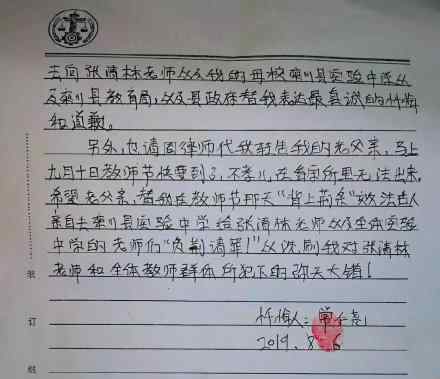 去向张清林老师以及我的母校栾川县实验中学以
及栾川县教育局，以及县政府替我表达最真诚的忏悔
和道歉。
另外，也请周律师代我转告我的老父亲，马上
九月十日教师节快要到了，不孝儿，在看守所里无法出来，
希望老父亲，替我在教师节那天"背上荆条"效法古人
亲自去栾川县实验中学给张清林老师以及全体实验
中学的老师们"负荆请罪！"以洗刷我对张清林
老师和全体教师群体所犯下的弥天大错！
忏悔人：常仁尧
2019、8、6
装
订
线